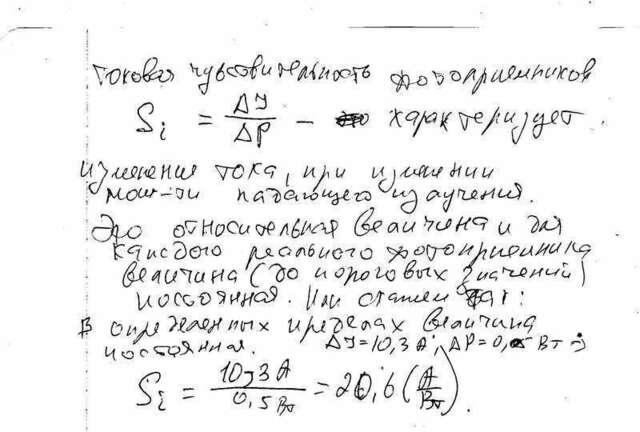 токовая чувствительность фотоприемников
Si = ΔI/ΔP – характеризует
изменение тока, при изменении
мощ-ти падающего излучения.
Это относительная величина и для
каждого реального фотоприемника
величина (до пороговых значений)
постоянная. Или скажем так:
в определенных пределах величина
постоянная. ΔI=10,3 А; ΔP=0,5 Вт
Si = 10,3 А/0,5 Вт = 20,6 (А/Вт).